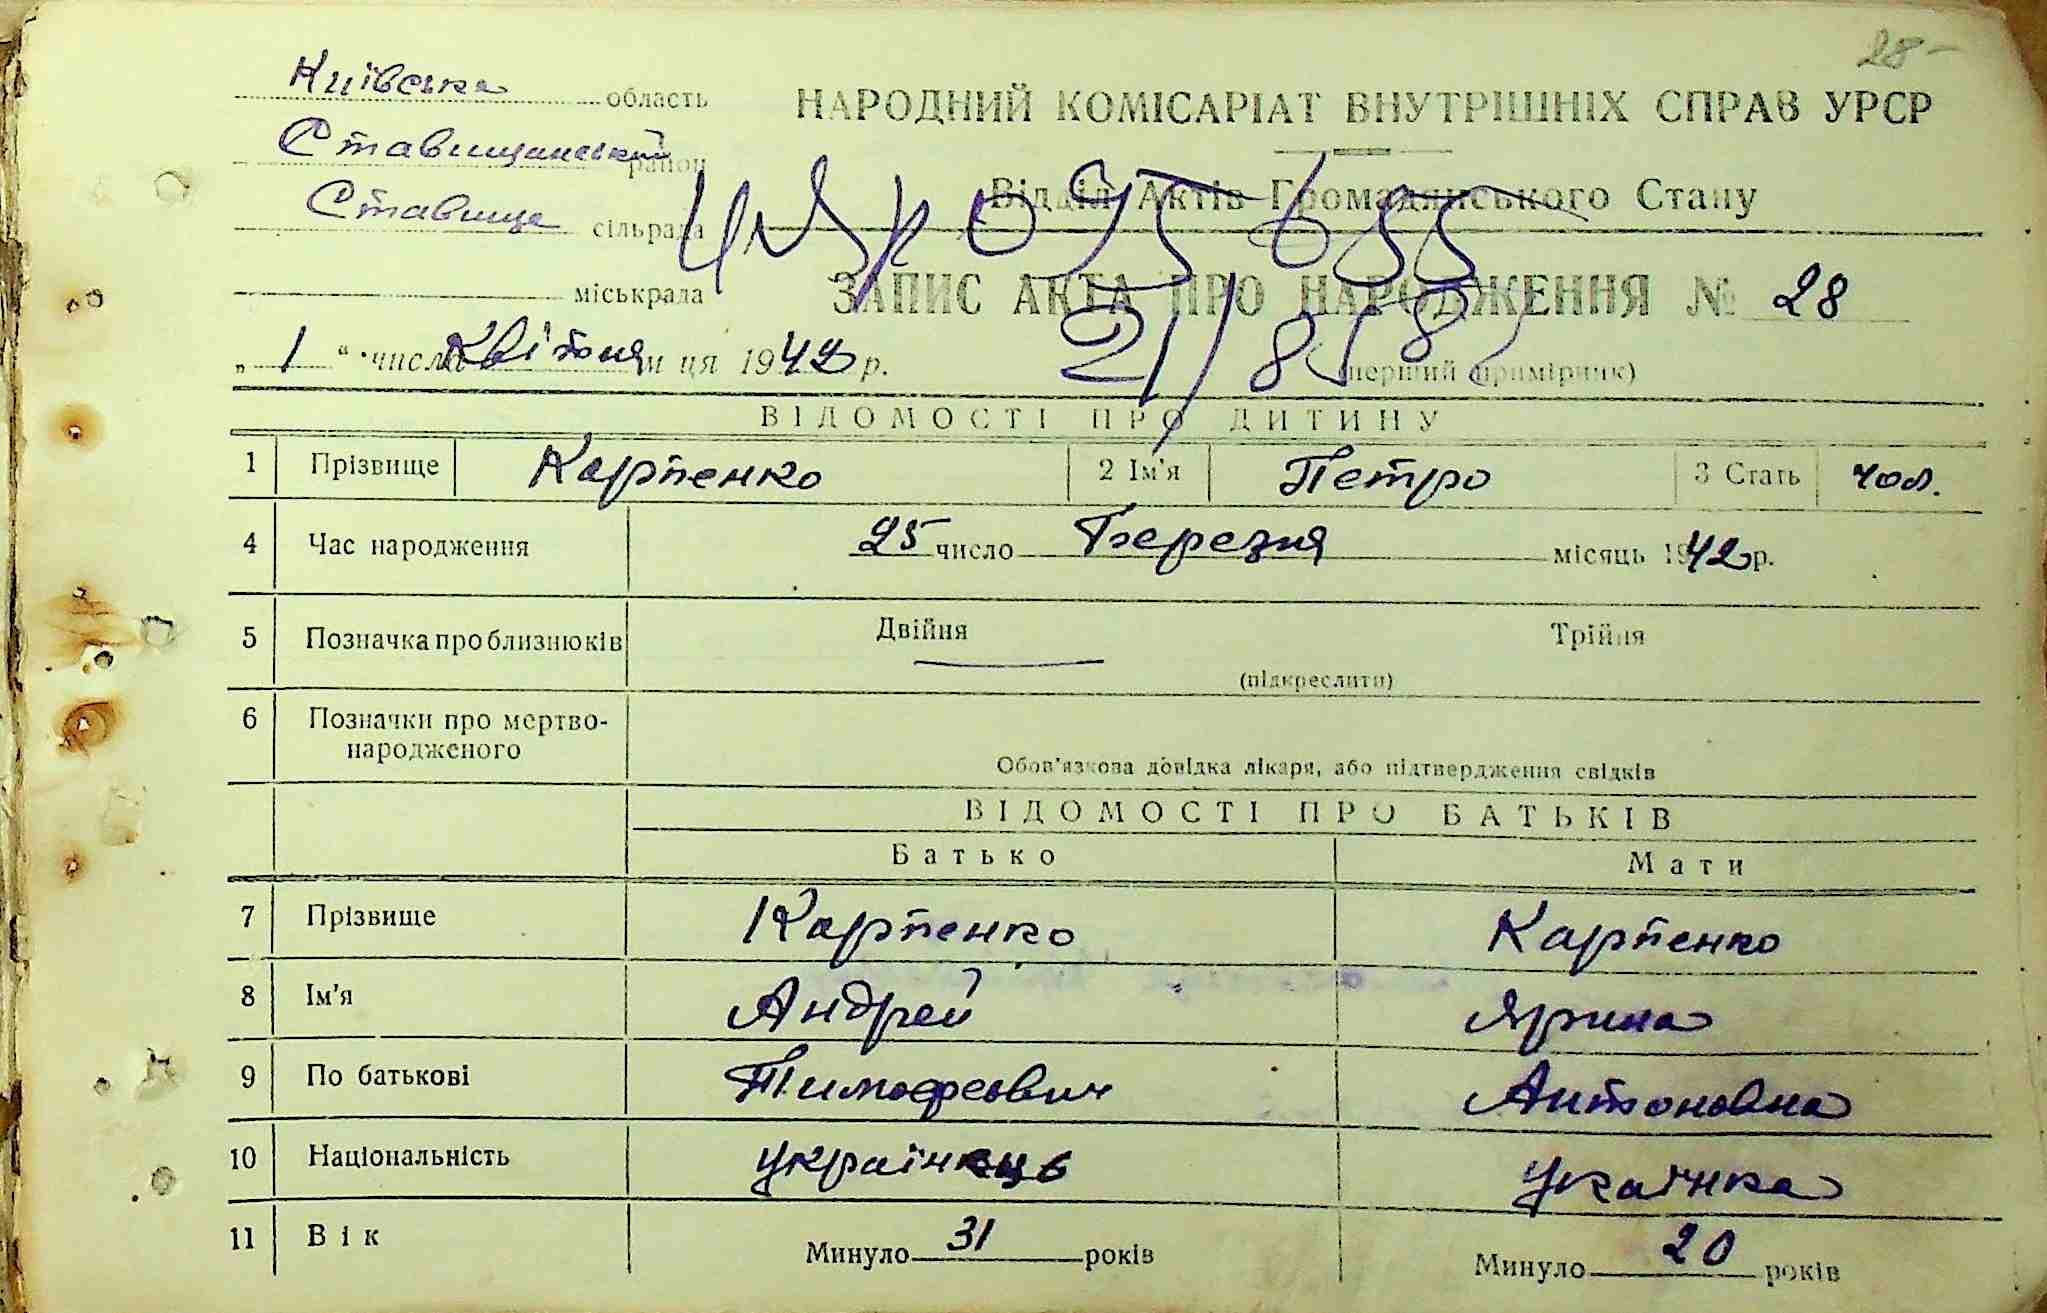 28-
Київська область
Ставищанський район
Ставище сільрада
міськрада
НАРОДНИЙ КОМІСАРІАТ ВНУТРІШНІХ СПРАВ УРСР
Відділ Актів Громадянського Стану
ЗАПИС АКТА ПРО НАРОДЖЕННЯ № 28
„ 1 “ числа Квітня м ця 1942 р.
(перший примірник)
ВІДОМОСТІ ПРО ДИТИНУ
1 Прізвище Карпенко 2 Ім'я Петро 3 Стать чол.
4 Час народження 25 число Березня місяць 1942 р.
5 Позначка про близнюків Двійня Трійня
(підкреслити)
6 Позначки про мертво-
народженого
Обов'язкова довідка лікаря, або підтвердження свідків
ВІДОМОСТІ ПРО БАТЬКІВ
Батько Мати
7 Прізвище Карпенко Карпенко
8 Ім'я Андрей Ярина
9 По батькові Тимофеович Антоновна
10 Національність українець Укаінка
11 Вік Минуло 31 років Минуло 20 років